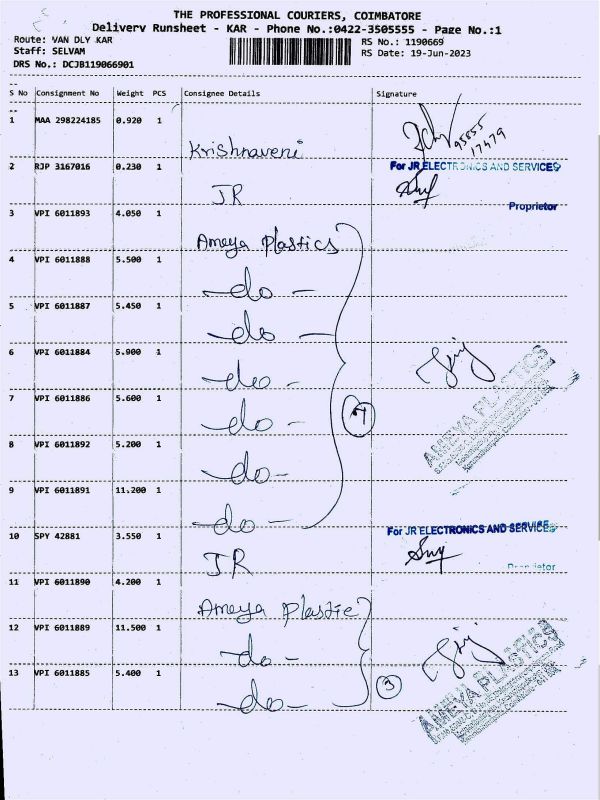 THE PROFESSIONAL COURIERS, COIMBATORE
Delivery Runsheet - KAR - Phone No.:0422-3505555 - Page No.:1
Route: VAN DLY KAR
RS No.: 1190669
Staff: SELVAM
RS Date: 19-Jun-2023
DRS No.: DCJB119066901
S No Consignment No Weight PCS Consignee Details Signature
1 MAA 298224185 0.920 1
Krishnaveni
95855
17479
2 RJP 3167016 0.230 1
For JR ELECTRONICS AND SERVICES
JR
Proprietor
3 VPI 6011893 4.050 1
Ameya Plastics
4 VPI 6011888 5.500 1
-do-
5 VPI 6011887 5.450 1
-do-
6 VPI 6011884 5.900 1
-do-
7 VPI 6011886 5.600 1
-do-
7
8 VPI 6011892 5.200 1
-do-
AMEYA PLASTICS
9 VPI 6011891 11.200 1
-do-
10 SPY 42881 3.550 1
For JR ELECTRONICS AND SERVICES
JR
Proprietor
11 VPI 6011890 4.200 1
Ameya Plastic
12 VPI 6011889 11.500 1
-do-
13 VPI 6011885 5.400 1
-do-
3
AMEYA PLASTICS